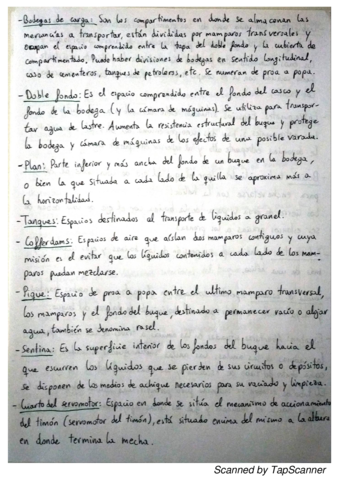 - Bodegas de carga: Son los compartimentos en donde se almacenan las
mercancías a transportar, están divididas por mamparos transversales y
ocupan el espacio comprendido entre la tapa del doble fondo y la cubierta de
compartimentado, Puede haber divisiones de bodegas en sentido longitudinal,
caso de cementeros, tanques de petroleros, etc. Se numeran de proa a popa.
- Doble fondo: Es el espacio comprendido entre el fondo del casco y el
fondo de la bodega (y la cámara de máquinas). Se utiliza para transpor-
tar agua de lastre. Aumenta la resistencia estructural del buque y protege
la bodega y cámara de máquinas de los efectos de una posible varada.
- Plan: Parte inferior y más ancha del fondo de un buque en la bodega,
o bien la que situada a cada lado de la quilla se aproxima más a
la horizontalidad.
- Tanques: Espacios destinados al transporte de líquidos a granel.
- Cofferdams: Espacios de aire que aíslan dos mamparos contiguos y cuya
misión es el evitar que los líquidos contenidos a cada lado de los mam-
paros puedan mezclarse.
- Pique: Espacio de proa a popa entre el ultimo mamparo transversal,
los mamparos y el fondo del buque, destinado a permanecer vacío o alojar
agua, también se denomina rasel.
- Sentina: Es la superficie interior de los fondos del buque hacia el
que escurren los líquidos que se pierden de sus circuitos o depósitos,
se disponen de los medios de achique necesarios para su vaciado y limpieza.
- Cuarto del servomotor: Espacio en donde se sitúa el mecanismo de accionamiento
del timón (servomotor del timón), está situado encima del mismo a la altura
en donde termina la mecha.
Scanned by TapScanner